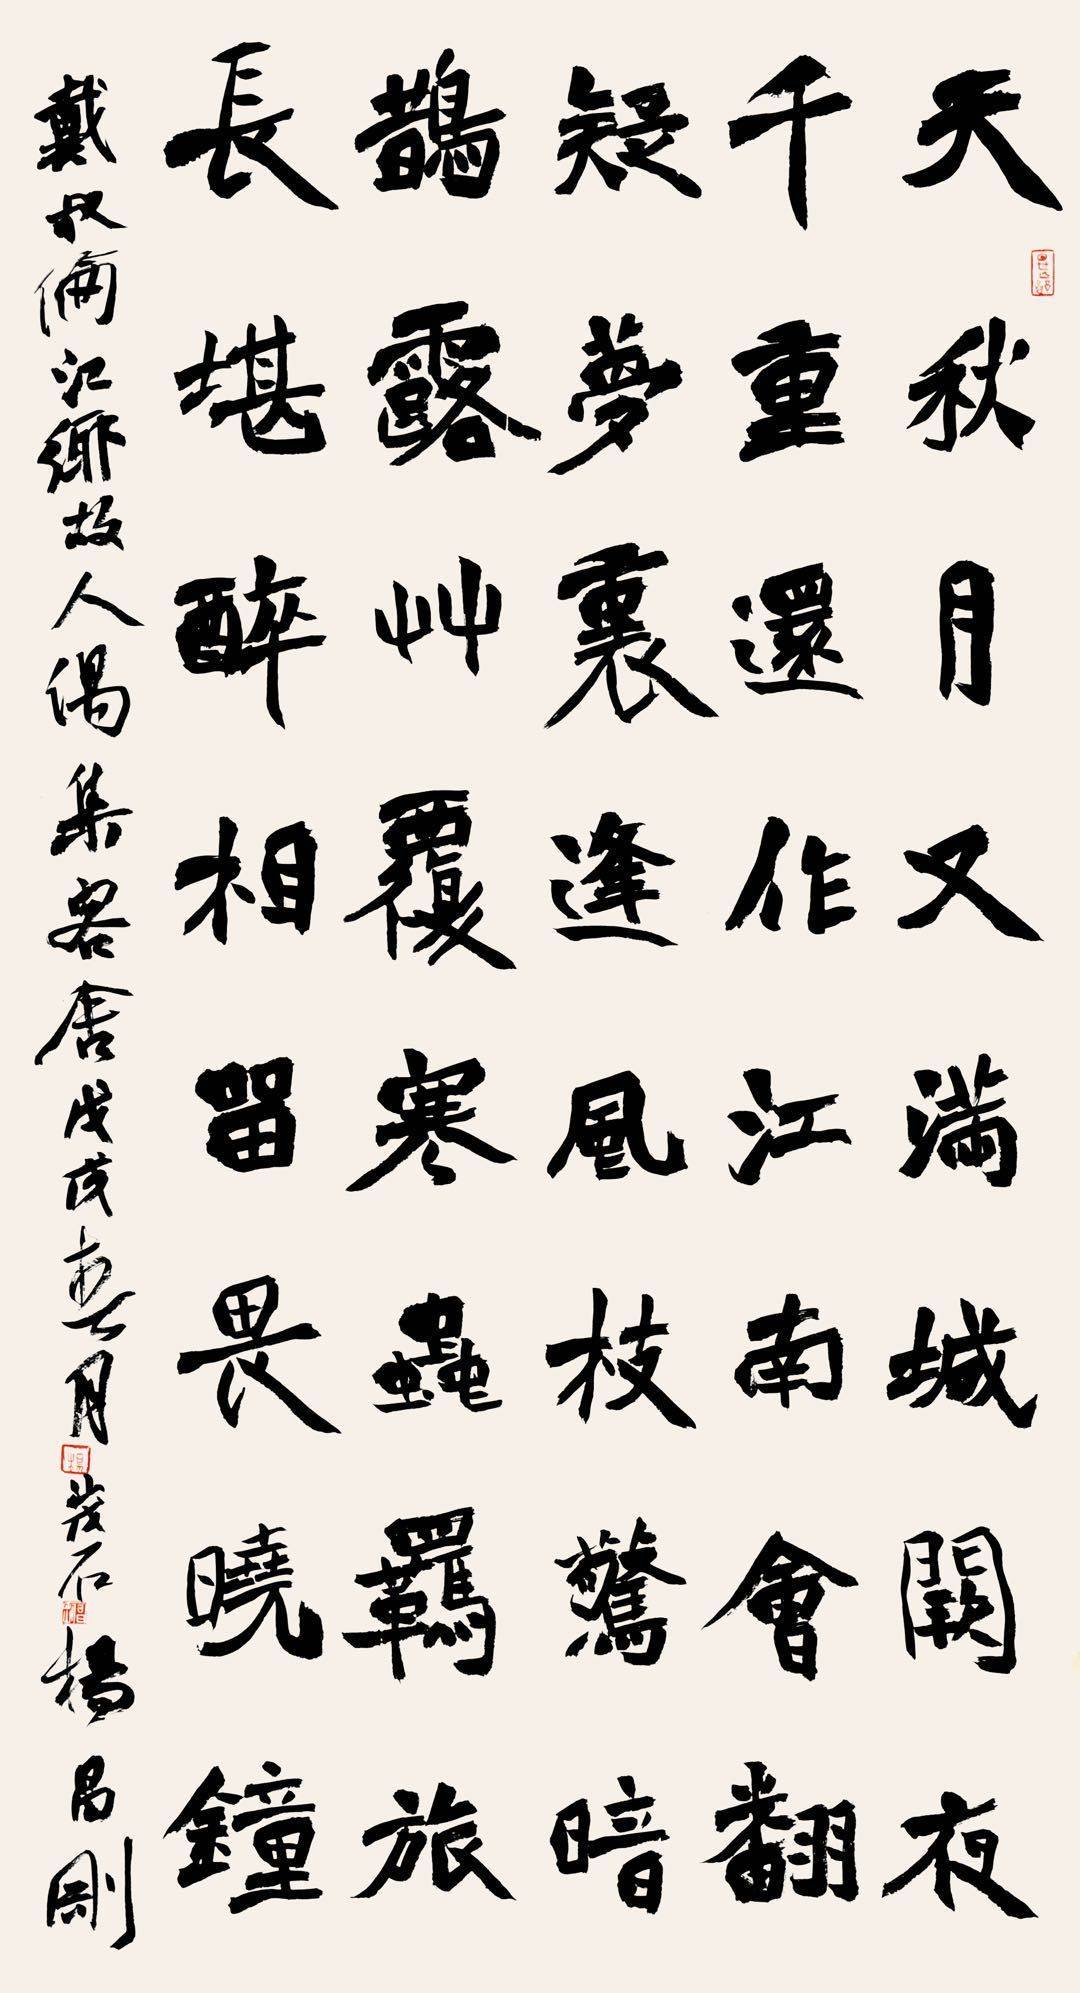 天秋月又滿城闕夜
千重還作江南會翻
疑夢裏逢風枝驚暗
鵲露艸覆寒蟲羈旅
長堪醉相留畏曉鐘
戴叔倫江鄉故人偶集客舍戊戌春月茂石楊昌剛